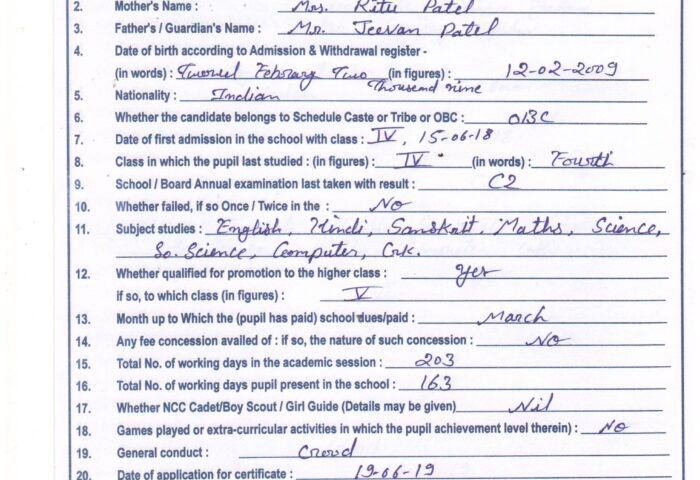 2. Mother's Name : Mrs. Ritu Patel
3. Father's / Guardian's Name : Mr. Jeevan Patel
4. Date of birth according to Admission & Withdrawal register -
(in words) : Febrary Two (in figures) : 12-02-2009
Thousend nine
5. Nationality : Indian
6. Whether the candidate belongs to Schedule Caste or Tribe or OBC : OBC
7. Date of first admission in the school with class : IV, 15-06-18
8. Class in which the pupil last studied : (in figures) : IV (in words) : Fourth
9. School / Board Annual examination last taken with result : C2
10. Whether failed, if so Once / Twice in the : No
11. Subject studies : English, Hindi, Sanskrit, Maths, Science,
So. Science, Computer, G.K.
12. Whether qualified for promotion to the higher class : Yes
if so, to which class (in figures) : V
13. Month up to Which the (pupil has paid) school dues/paid : March
14. Any fee concession availed of : if so, the nature of such concession : No
15. Total No. of working days in the academic session : 203
16. Total No. of working days pupil present in the school : 163
17. Whether NCC Cadet/Boy Scout / Girl Guide (Details may be given) Nil
18. Games played or extra-curricular activities in which the pupil achievement level therein) : No
19. General conduct : Good
20. Date of application for certificate : 19-06-19